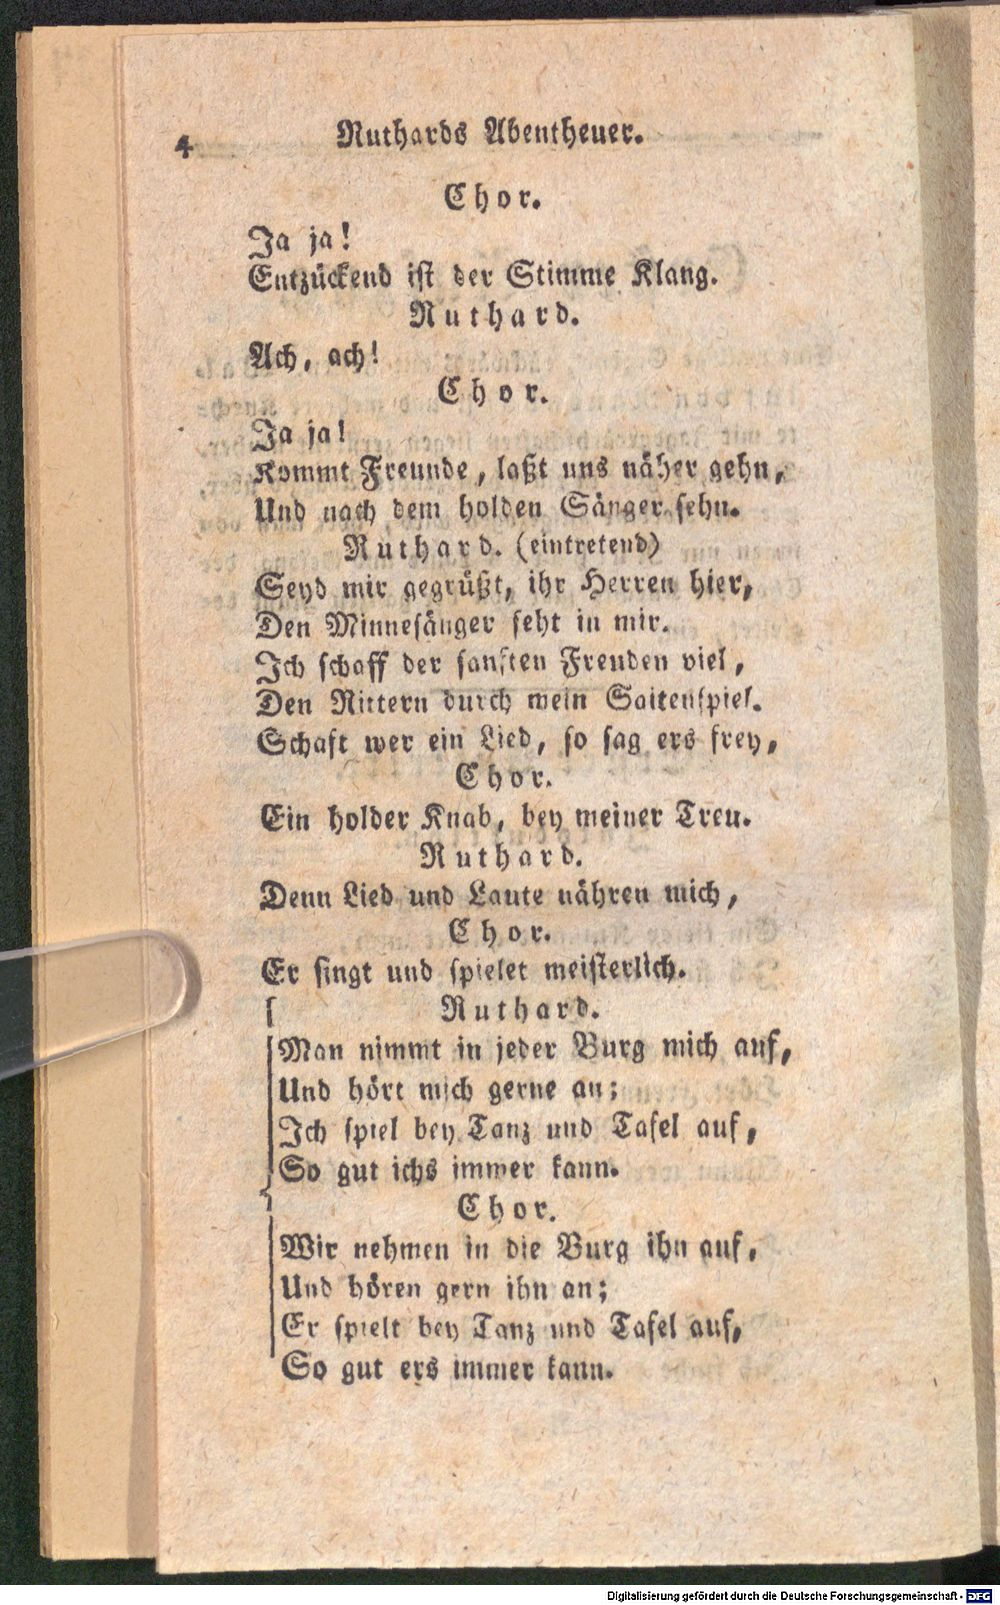 4 Ruthards Abentheuer.
Chor.
Ja ja!
Entzückend ist der Stimme Klang.
Ruthard.
Ach, ach!
Chor.
Ja ja!
Kommt Freunde, laßt uns näher gehn,
Und nach dem holden Sänger sehn.
Ruthard. (eintretend)
Seyd mir gegrüßt, ihr Herren hier,
Den Minnesänger seht in mir.
Ich schaff der sanften Freuden viel,
Den Rittern durch mein Saitenspiel.
Schaft wer ein Lied, so sag ers frey,
Chor.
Ein holder Knab, bey meiner Treu.
Ruthard.
Denn Lied und Laute nähren mich,
Chor.
Er singt und spielet meisterlich.
Ruthard.
Man nimmt in jeder Burg mich auf,
Und hört mich gerne an;
Ich spiel bey Tanz und Tafel auf,
So gut ichs immer kann.
Chor.
Wir nehmen in die Burg ihn auf,
Und hören gern ihn an;
Er spielt bey Tanz und Tafel auf,
So gut ers immer kann.
Digitalisierung gefördert durch die Deutsche Forschungsgemeinschaft - DFG